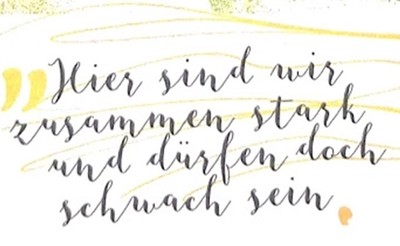 „Hier sind wir
zusammen stark
und dürfen doch
schwach sein.